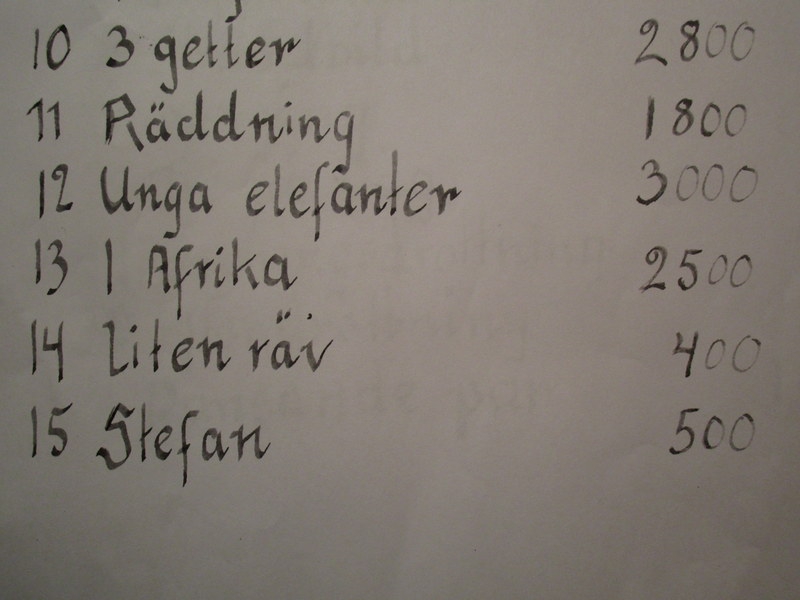 10 3 getter 2800
11 Räddning 1800
12 Unga elefanter 3000
13 I Afrika 2500
14 Liten räv 400
15 Stefan 500